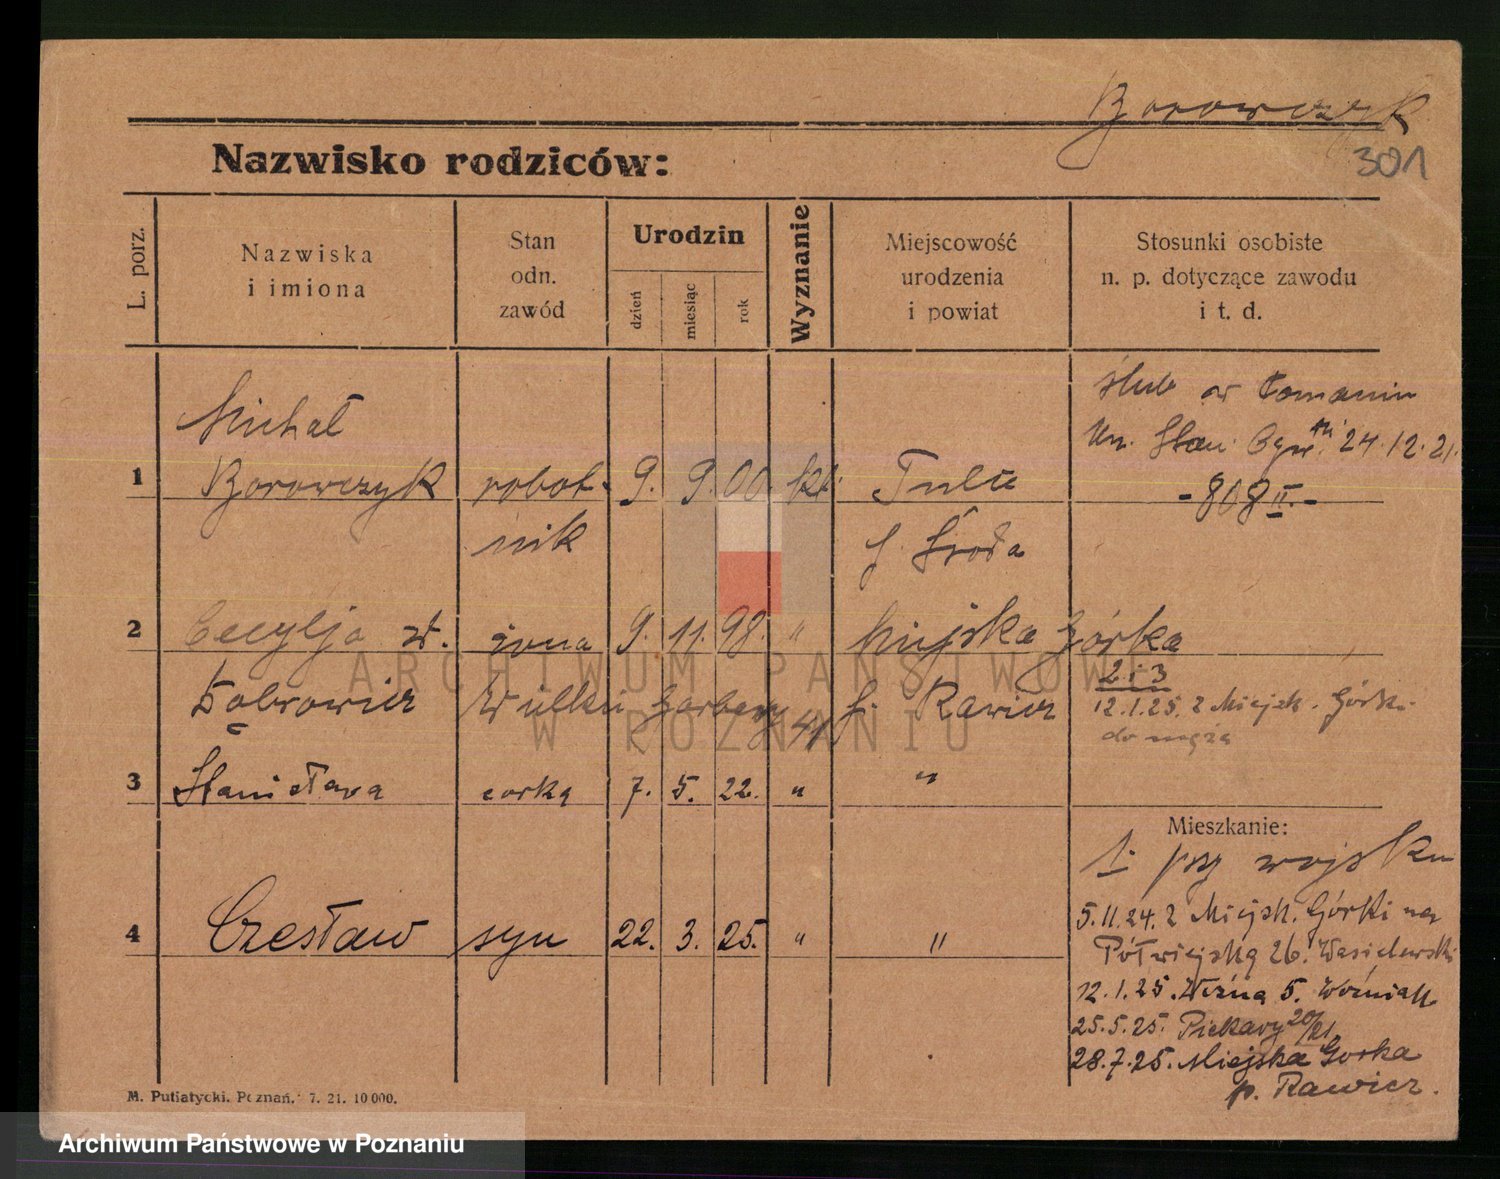 Borowczyk
301
Nazwisko rodziców:
L. porz.
Nazwiska
i imiona
Stan
odn.
zawód
Urodzin
dzień
miesiąc
rok
Wyznanie
Miejscowość
urodzenia
i powiat
Stosunki osobiste
n. p. dotyczące zawodu
i t. d.
1
Michał
Borowczyk
robot-
nik
9. 9. 00. kt.
Tulce
p. Środa
ślub w
24.12.21.
-808 II.-
2
Cecylja
żona
9. 11. 98. "
Miejska Górka
Dobrowicz
Wielkie Garbary 41
p. Rawicz
2 i 3
12.1.25. z Miejsk. Górki
do męża
3
Stanisława
corka
7. 5. 22. "
"
Mieszkanie:
1. przy wojsku
4
Czesław
syn
22. 3. 25. "
"
5.11.24. z Miejsk. Górki na
Półwiejską 26. Wasielewski
12.1.25. Wozniak
25.5.25. Piekary 20/21.
28.7.25. Miejska Gorka
p. Rawicz.
M. Putiatycki. Poznań. 7. 21. 10 000.
ARCHIWUM PAŃSTWOWE
W POZNANIU
Archiwum Państwowe w Poznaniu